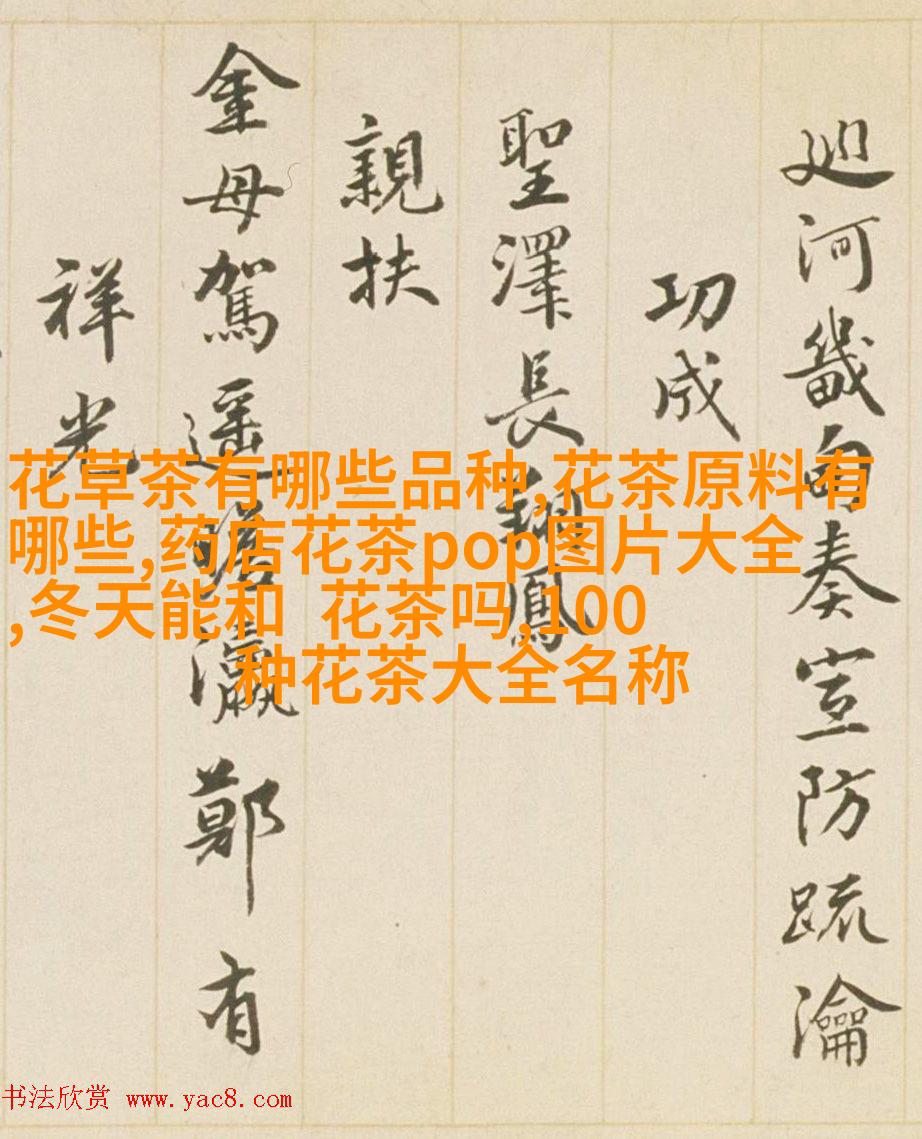 廵河畿甸奏宣防疏瀹
功成
聖澤長翔鳳
親扶
金母駕遥瀛鄭有
祥光
花草茶有哪些品种,花茶原料有
哪些,药店花茶pop图片大全
,冬天能和 花茶吗,100
种花茶大全名称
书法欣赏 www.yac8.com